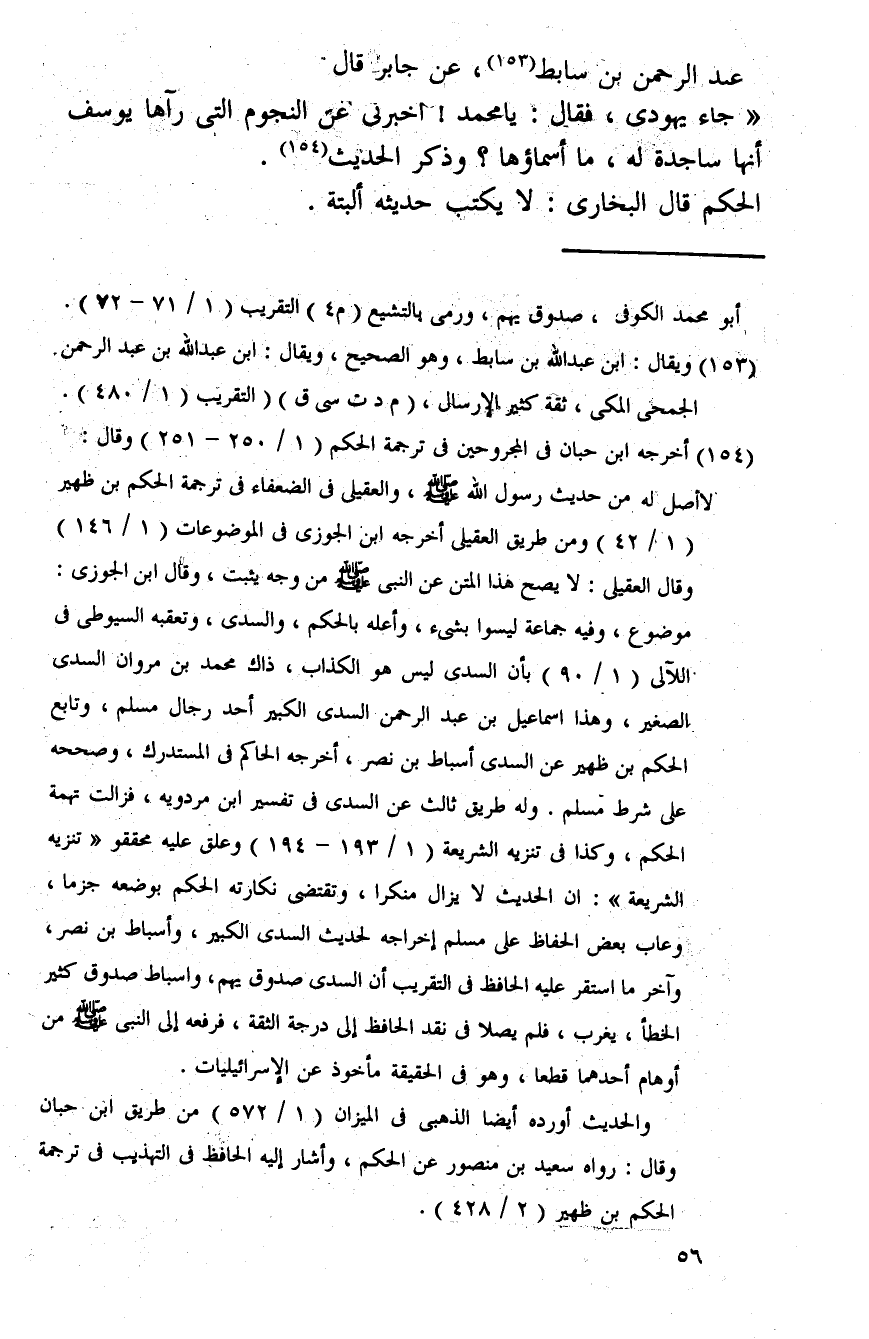 عبد الرحمن بن سابط(١٥٣) ، عن جابر قال
« جاء يهودى ، فقال : يامحمد ! اخبرنى عن النجوم التى رآها يوسف
أنها ساجدة له ، ما أسماؤها ؟ وذكر الحديث(١٥٤) .
الحكم قال البخارى : لا يكتب حديثه ألبتة .
أبو محمد الكوفى ، صدوق يهم ، ورمى بالتشيع ( م٤ ) التقريب ( ١ / ٧١ – ٧٢ ) .
(١٥٣) ويقال : ابن عبدالله بن سابط ، وهو الصحيح ، ويقال : ابن عبدالله بن عبد الرحمن
الجمحى المكى ، ثقة كثير الإرسال ، ( م د ت سى ق ) ( التقريب ( ١ / ٤٨٠ ) .
(١٥٤) أخرجه ابن حبان فى المجروحين فى ترجمة الحكم ( ١ / ٢٥٠ – ٢٥١ ) وقال :
لاأصل له من حديث رسول الله ﷺ ، والعقيلى فى الضعفاء فى ترجمة الحكم بن ظهير
( ١ / ٤٢ ) ومن طريق العقيلى أخرجه ابن الجوزى فى الموضوعات ( ١ / ١٤٦ )
وقال العقيلى : لا يصح هذا المتن عن النبى ﷺ من وجه يثبت ، وقال ابن الجوزى :
موضوع ، وفيه جماعة ليسوا بشىء ، وأعله بالحكم ، والسدى ، وتعقبه السيوطى فى
اللآلى ( ١ / ٩٠ ) بأن السدى ليس هو الكذاب ، ذاك محمد بن مروان السدى
الصغير ، وهذا اسماعيل بن عبد الرحمن السدى الكبير أحد رجال مسلم ، وتابع
الحكم بن ظهير عن السدى أسباط بن نصر ، أخرجه الحاكم فى المستدرك ، وصححه
على شرط مسلم . وله طريق ثالث عن السدى فى تفسير ابن مردويه ، فزالت تهمة
الحكم ، وكذا فى تنزيه الشريعة ( ١ / ١٩٣ – ١٩٤ ) وعلق عليه محققو « تنزيه
الشريعة » : ان الحديث لا يزال منكرا ، وتقتضى نكارته الحكم بوضعه جزما ،
وعاب بعض الحفاظ على مسلم إخراجه لحديث السدى الكبير ، وأسباط بن نصر ،
وآخر ما استقر عليه الحافظ فى التقريب أن السدى صدوق يهم، واسباط صدوق كثير
الخطأ ، يغرب ، فلم يصلا فى نقد الحافظ إلى درجة الثقة ، فرفعه إلى النبى ﷺ من
أوهام أحدهما قطعا ، وهو فى الحقيقة مأخوذ عن الإسرائيليات .
والحديث أورده أيضا الذهبى فى الميزان ( ١ / ٥٧٢ ) من طريق ابن حبان
وقال : رواه سعيد بن منصور عن الحكم ، وأشار إليه الحافظ فى التهذيب فى ترجمة
الحكم بن ظهير ( ٢ / ٤٢٨ ) .
٥٦